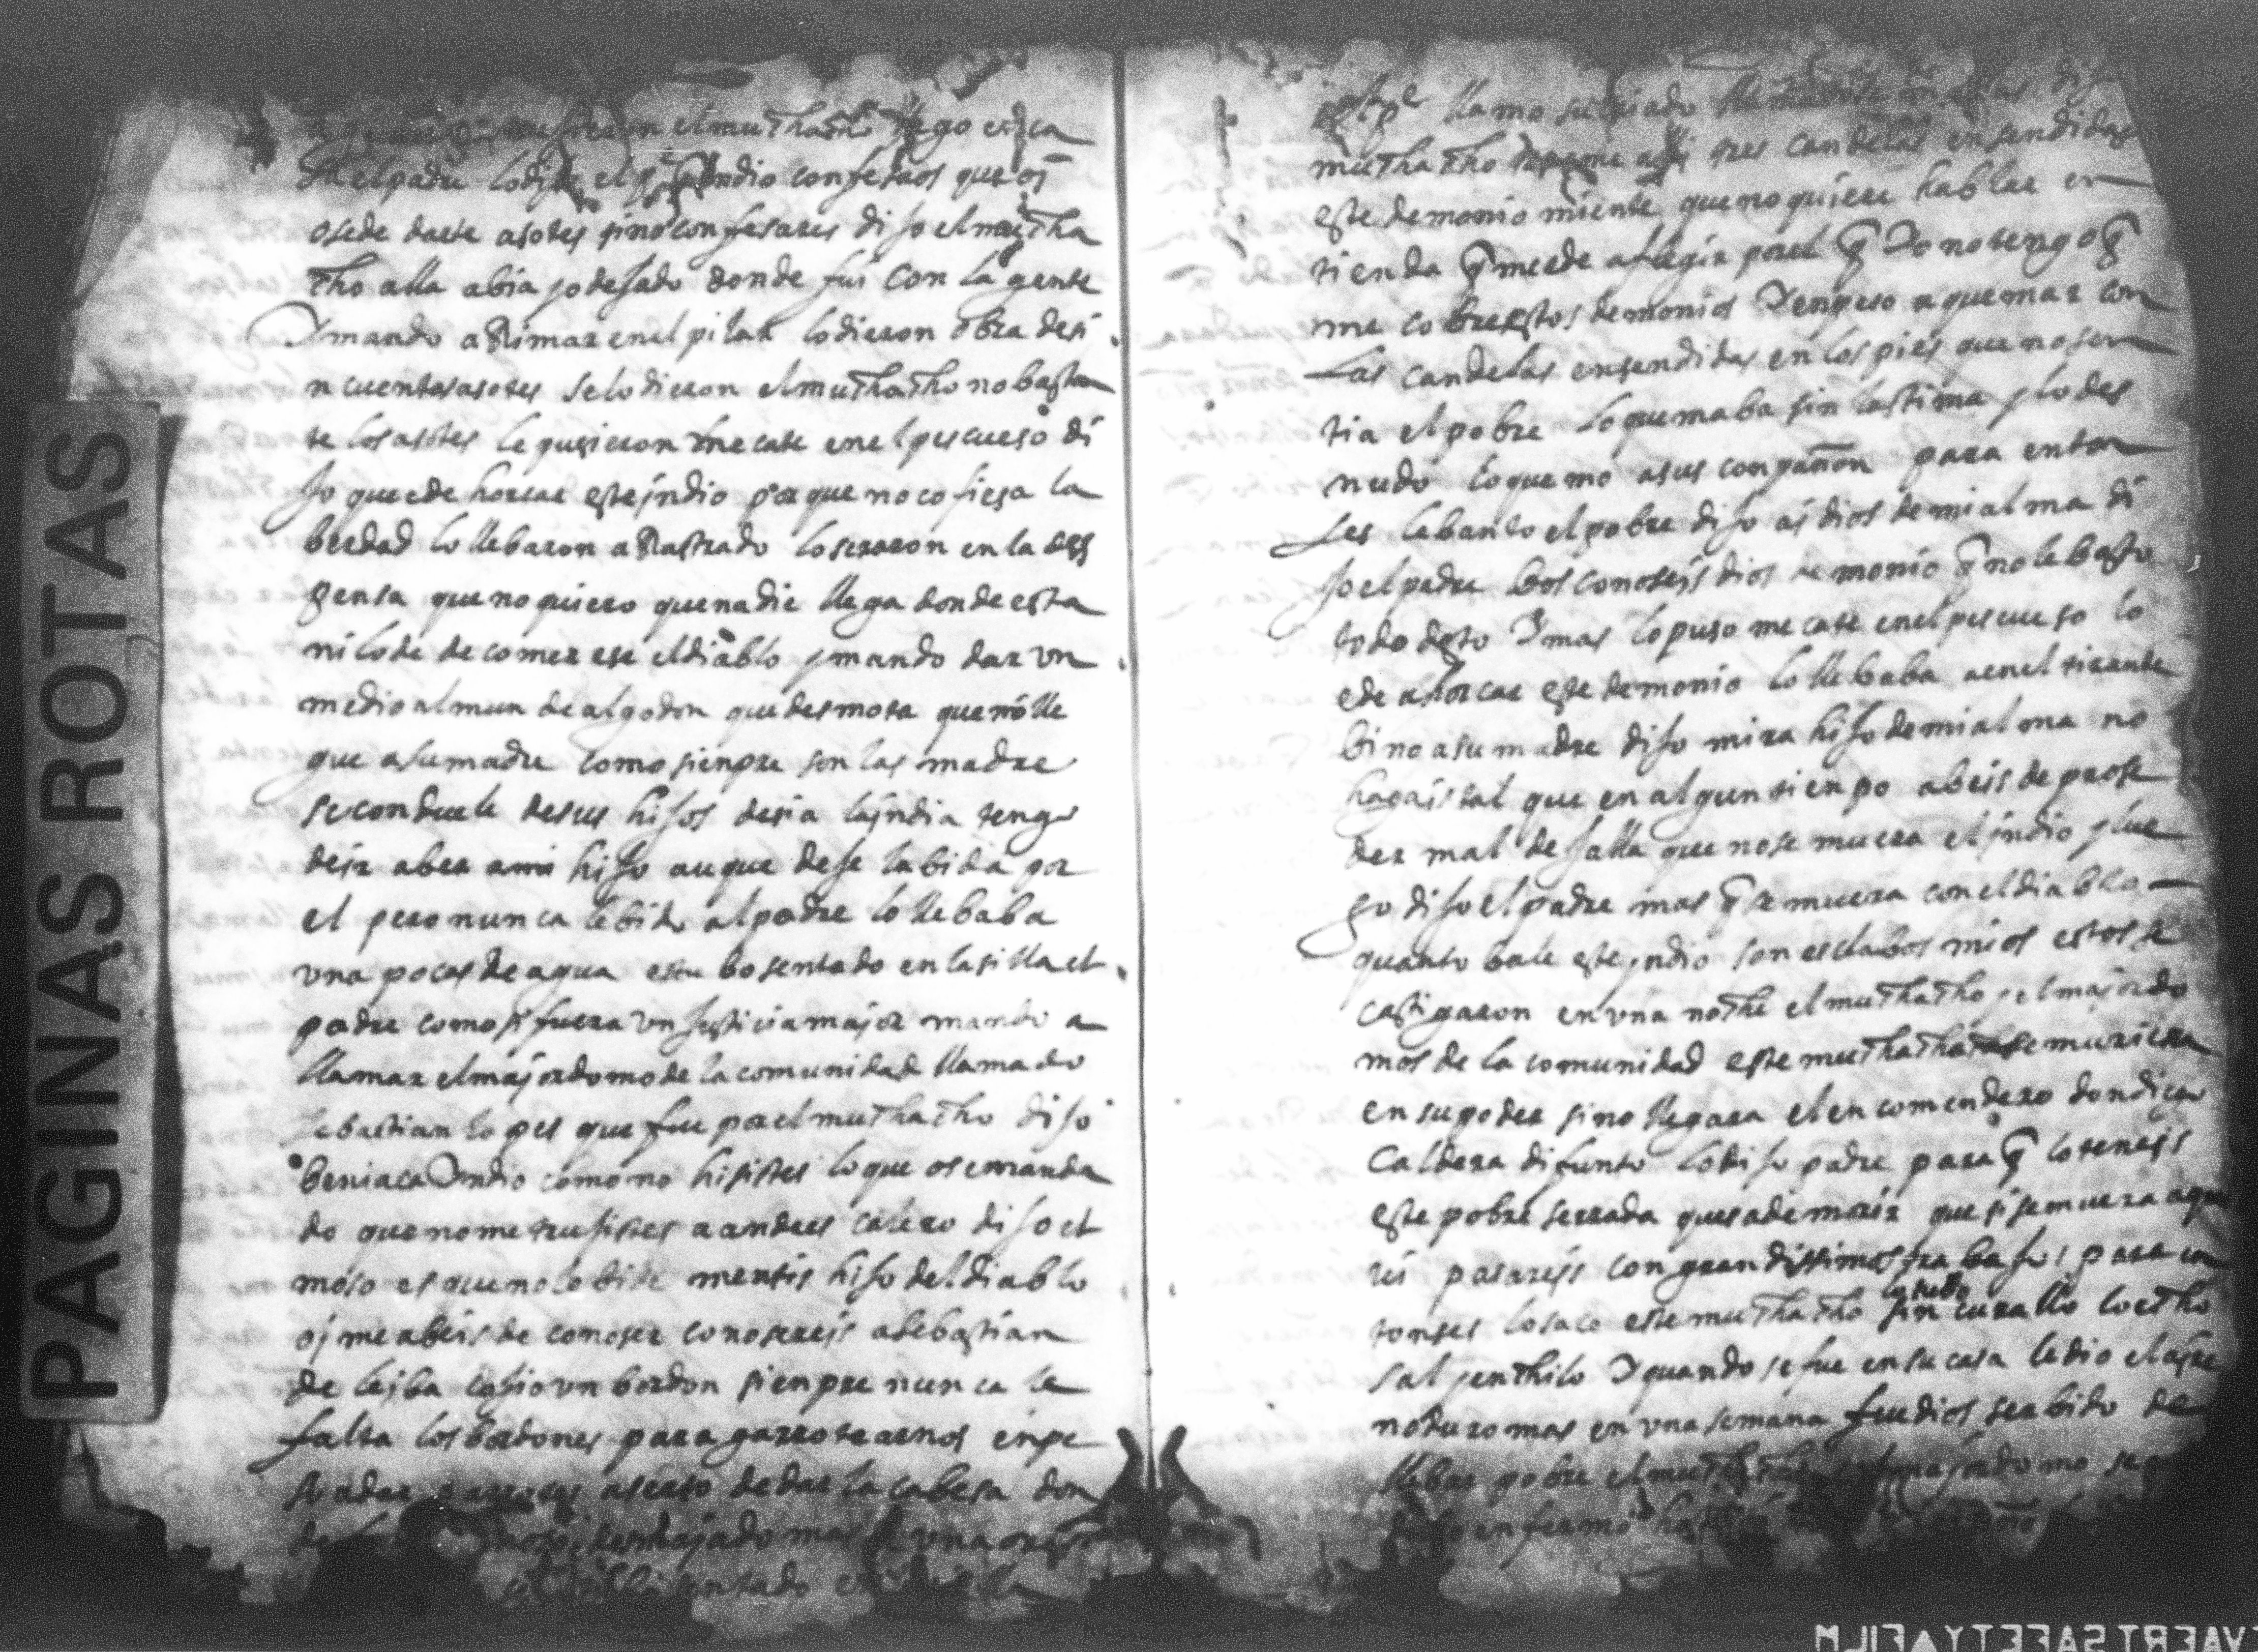 PAGINAS ROTAS
el muchacho
el padre lo dijo el indio confesaos que oi
osede darte asotes sino confesares dijo el mucha
cho alla abia jo dejado donde fui con la gente
Y mando a Rimar en el pilar lo dieron obra de si
n cuentas asotes se lo dieron el muchacho no basta
te los asotes le pusieron mecate en el pescueso di
jo que ede horcar este indio porque no cofiesa la
berdad lo llebaron a Rastrado lo seraron en la des
pensa que no quiero que nadie llega donde esta
ni lo de de comer ese el diablo y mando dar un
medio almun de algodon que desmota que no lle
gue a su madre como sienpre son las madre
se conduele de sus hijos desia la india tengo
de ir a ber a mi hijo auque deje la bida por
el pero nunca le bido al padre lo llebaba
una pocas de agua estubo sentado en la silla el
padre como si fuera un justicia major mando a
llamar el majordomo de la comunidad llamado
sebastian lopes que fue por el muchacho dijo
beni aca Indio como no hisistes lo que os e manda
do que no me trujistes a andres calero dijo el
moso es que no le bide mentis hijo del diablo
oi me abeis de conoser conosereis a sebastian
de leiba cojio un bordon sienpre nunca le
falta los bordones para garrotearnos enpe
so a dar aserto de dar la cabesa don
desmajado mas de una
sentado
llamo su criado
muchacho aqi tres candelas ensendidas
este demonio miente que no quiere hablar en
tienda q̃ me ede aflegir por el q̃ Io no tengo q̃
me cobre estos demonios I enpeso a quemar con
Las candelas ensendidas en los pies que no sen
tia el pobre lo quemaba sin lastima y lo des
nudo lo quemo a sus conpañon para enton
ses lebanto el pobre dijo ai dios de mi alma di
jo el padre bos conoseis dios demonio q̃ no le basto
todo desto I mas lo puso mecate en el pescueso lo
ede ahorcar este demonio lo llebaba a en el tirante
bino a su madre dijo mira hijo de mi alma no
hagais tal que en algun tienpo abeis de prose
der mal dejalla que no se muera el indio y lue
go dijo el padre mas q̃ se muera con el diablo
quanto bale este indio son esclabos mios estos se
castigaron en una noche el muchacho y el majordo
mos de la comunidad este muchacho se muriera
en su poder sino llegara el encomendero don diego
Caldera difunto lo dijo padre para q̃ lo teneis
este pobre serrada quesa de morir que si se muera aqu
ui pasareis con grandissimos trabajos para en
tonses lo saco este muchacho sin curallo lo echo
sal y en chilo I quando se fue en su casa le dio
no duro mas en una semana fue dios serbido de
llebar pobre el muchacho majordomo
enfermo